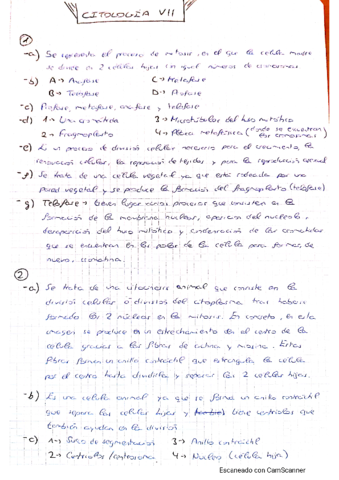 CITOLOGÍA VII
①
-a) Se representa el proceso de mitosis, en el que la célula madre
se divide en 2 células hijas con igual número de cromosomas
-b) A → Anafase C → Metafase
B → Telofase D → Profase
-c) Profase, metafase, anafase y telofase
-d) 1 → 3 → Microtúbulos del huso mitótico
2 → Fragmoplasto 4 → Placa metafásica (donde se encuentran los cromosomas)
-e) Es un proceso de división celular necesario para el crecimiento, la
renovación celular, la reparación de tejidos y para la reproducción asexual
-f) Se trata de una célula vegetal ya que está rodeada por una
pared vegetal y se produce la formación del fragmoplasto (telofase)
-g) Telofase → tienen lugar varios procesos que consisten en la
formación de la membrana nuclear, aparición del nucleolo,
desaparición del huso mitótico y condensación de las cromátidas
que se encuentran en los polos de la célula para formar, de
nuevo, cromatina.
②
-a) Se trata de una citocinesis animal que consiste en la
división celular o división del citoplasma tras haberse
formado los 2 núcleos en la mitosis. En concreto, en esta
imagen se produce un estrechamiento en el centro de la
célula gracias a las fibras de actina y miosina. Estas
fibras forman un anillo contráctil que estrangula la célula
por el centro hasta dividirla y separar las 2 células hijas.
-b) Es una célula animal ya que se forma un anillo contráctil
que separa las células hijas y tiene centriolos que
también ayudan en la división
-c) 1 → Surco de segmentación 3 → Anillo contráctil
2 → Centriolos / centrosoma 4 → Núcleo (célula hija)
Escaneado con CamScanner